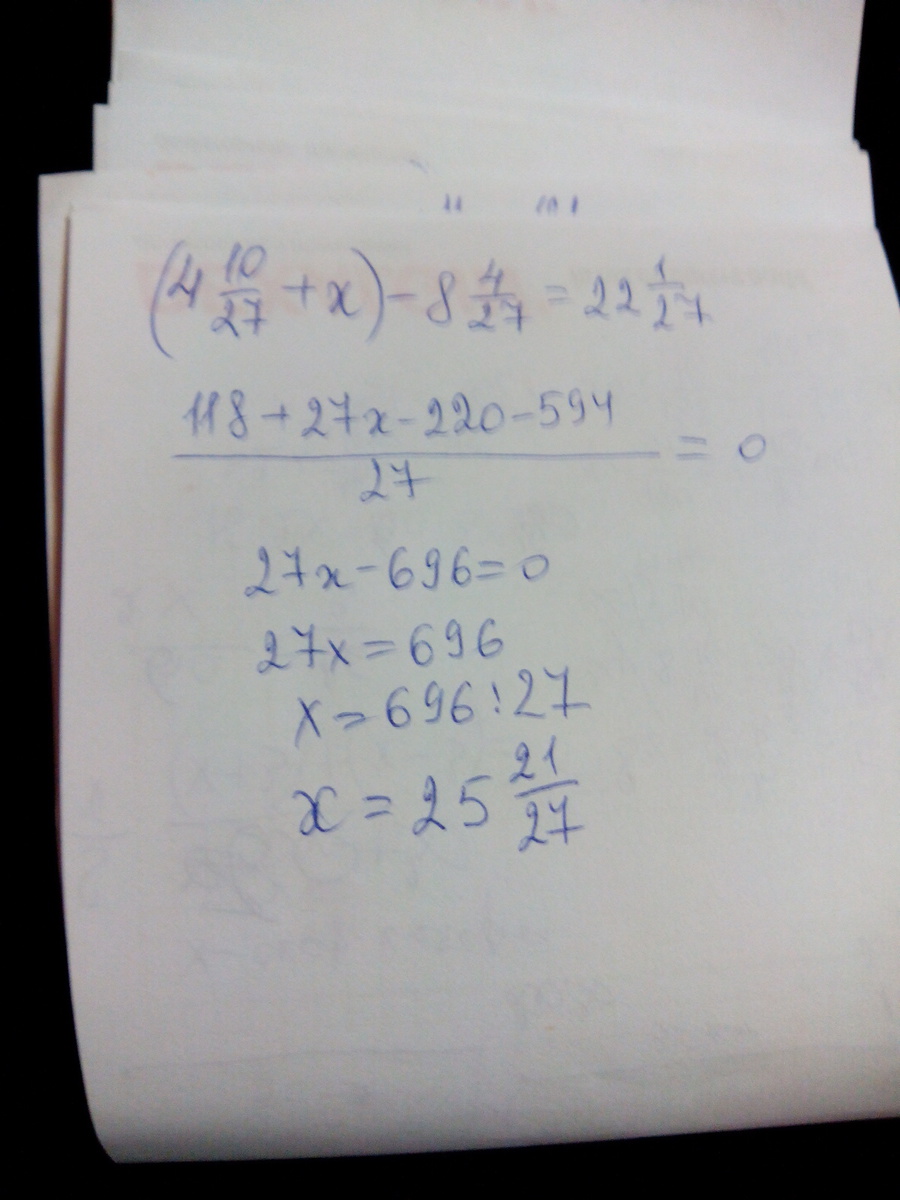 (4 10/27 + x) - 8 4/27 = 22 1/27
(118 + 27x - 220 - 594)/27 = 0
27x - 696 = 0
27x = 696
x = 696 : 27
x = 25 21/27